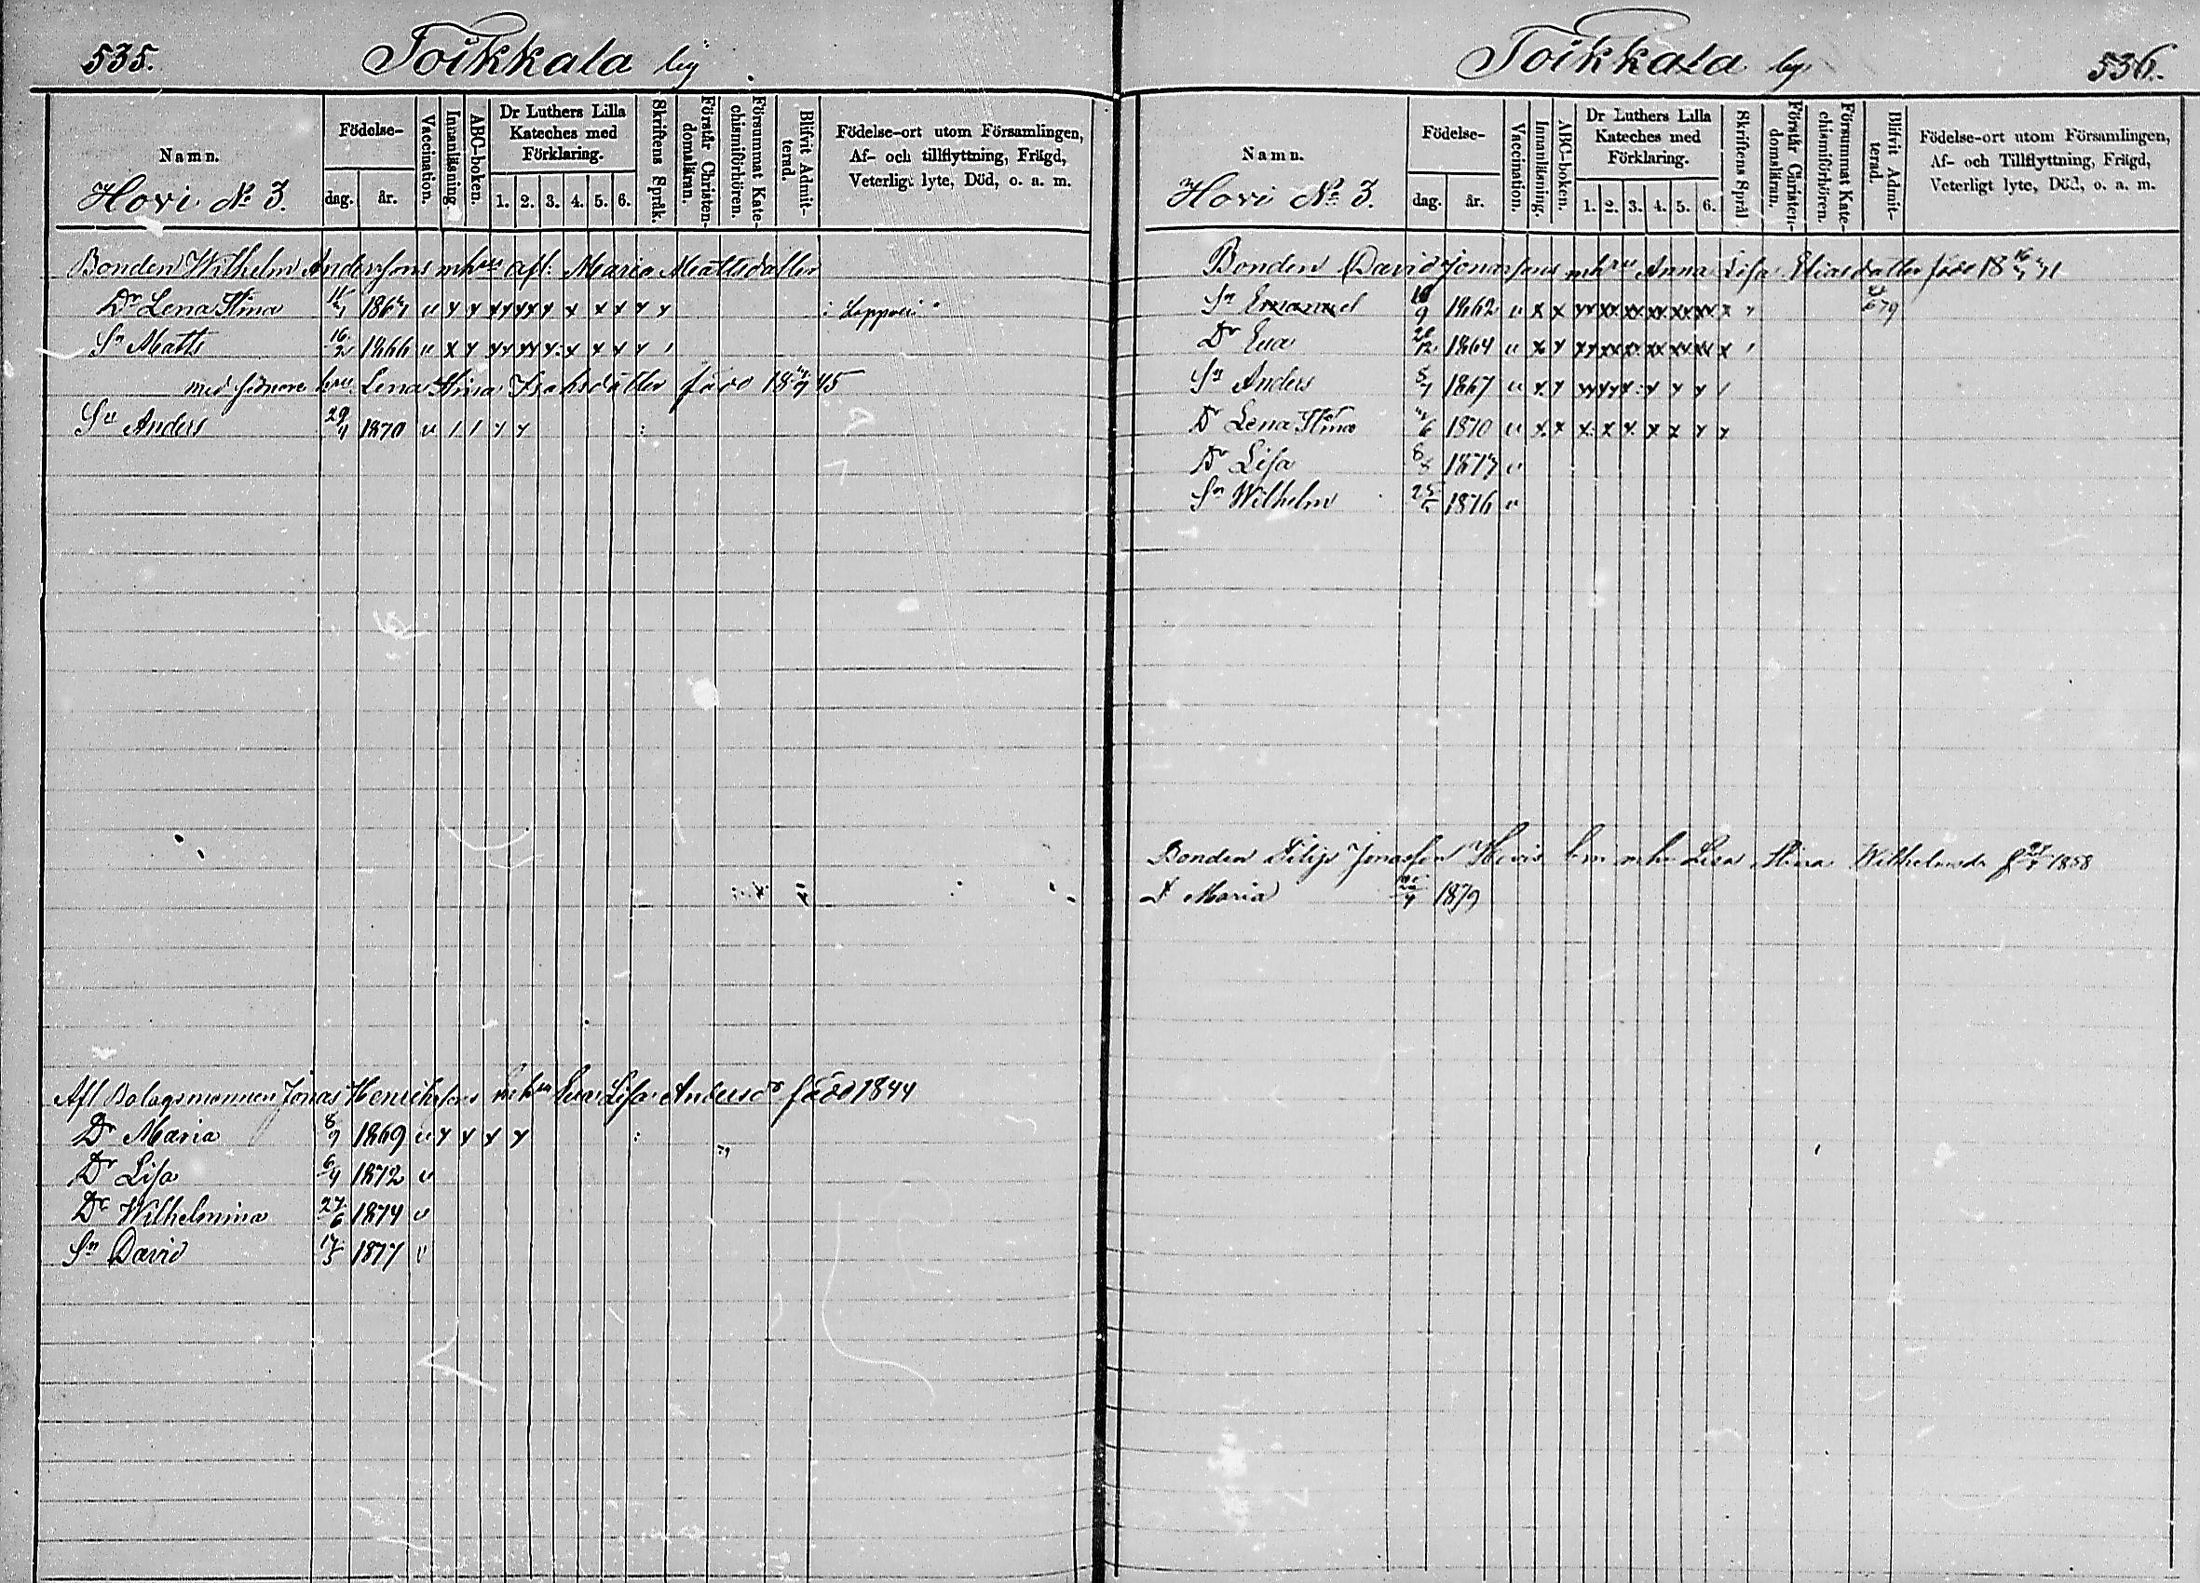 535. Toikkala by
Namn.
Födelse-
dag. år.
Vaccination.
Innanläsning.
ABC-boken.
Dr Luthers Lilla
Kateches med
Förklaring.
1. 2. 3. 4. 5. 6.
Skriftens Språk.
Förstår Christen-
domsläran.
Försummat Kate-
chismiförhören.
Blifvit Admit-
terad.
Födelse-ort utom Församlingen,
Af- och tillflyttning, Frägd,
Veterligt lyte, Död, o. a. m.
Hovi No 3.
Bonden Wilhelm Anderssons mhru afl: Maria Mattsdatter
Dr Lena Stina
Sn Matts 16/2 1866 v
med senare hru Lena Stina Isaksdatter född
Sn Anders 29/4 1870 v
Afl Bolagsmannen Jonas Henrikssons Lisa Andersdr född 1844
Dr Maria 8/9 1869 v
Dr Lisa 6/4 1872 v
Dr Wilhelmina 27/6 1874 v
Sn David 1877 v
Toikkala by 536.
Namn.
Födelse-
dag. år.
Vaccination.
Innanläsning.
ABC-boken.
Dr Luthers Lilla
Kateches med
Förklaring.
1. 2. 3. 4. 5. 6.
Skriftens Språk.
Förstår Christen-
domsläran.
Försummat Kate-
chismiförhören.
Blifvit Admit-
terad.
Födelse-ort utom Församlingen,
Af- och Tillflyttning, Frägd,
Veterligt lyte, Död, o. a. m.
Hovi No 3.
Bonden David Jonassons mhru Anna Lisa Eliasdatter född
Sn Emanuel 1862 v 79
Dr Eva 1864 v
Sn Anders 1867 v
Dr Lena Stina 1870 v
Dr Lisa v
Sn Wilhelm 1876 v
Bonden Filip Jonasson Hovis mhr Lena Stina Wilhelmsdr 1858
D Maria 1879